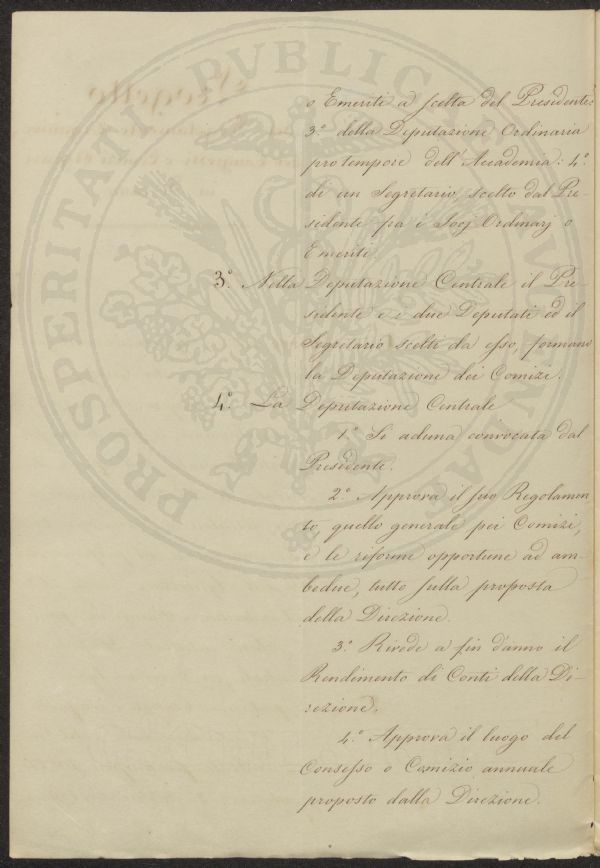 PROSPERITATI PVBLICAE AVGENDAE
o Emeriti a scelta del Presidente:
3.° della Deputazione Ordinaria
pro tempore dell'Accademia: 4.°
di un Segretario, scelto dal Pre-
sidente fra i Socj Ordinarj o
Emeriti.
3.° Nella Deputazione Centrale il Pre-
sidente e i due Deputati ed il
Segretario scelti da esso, formano
la Deputazione dei Comizi.
4.° La Deputazione Centrale
1.° Si aduna convocata dal
Presidente.
2.° Approva il suo Regolamen
to, quello generale pei Comizi,
e le riforme opportune ad am-
bedue, tutto sulla proposta
della Direzione.
3.° Rivede a fin d'anno il
Rendimento di Conti della Di-
rezione.
4.° Approva il luogo del
Consesso o Comizio annuale
proposto dalla Direzione.